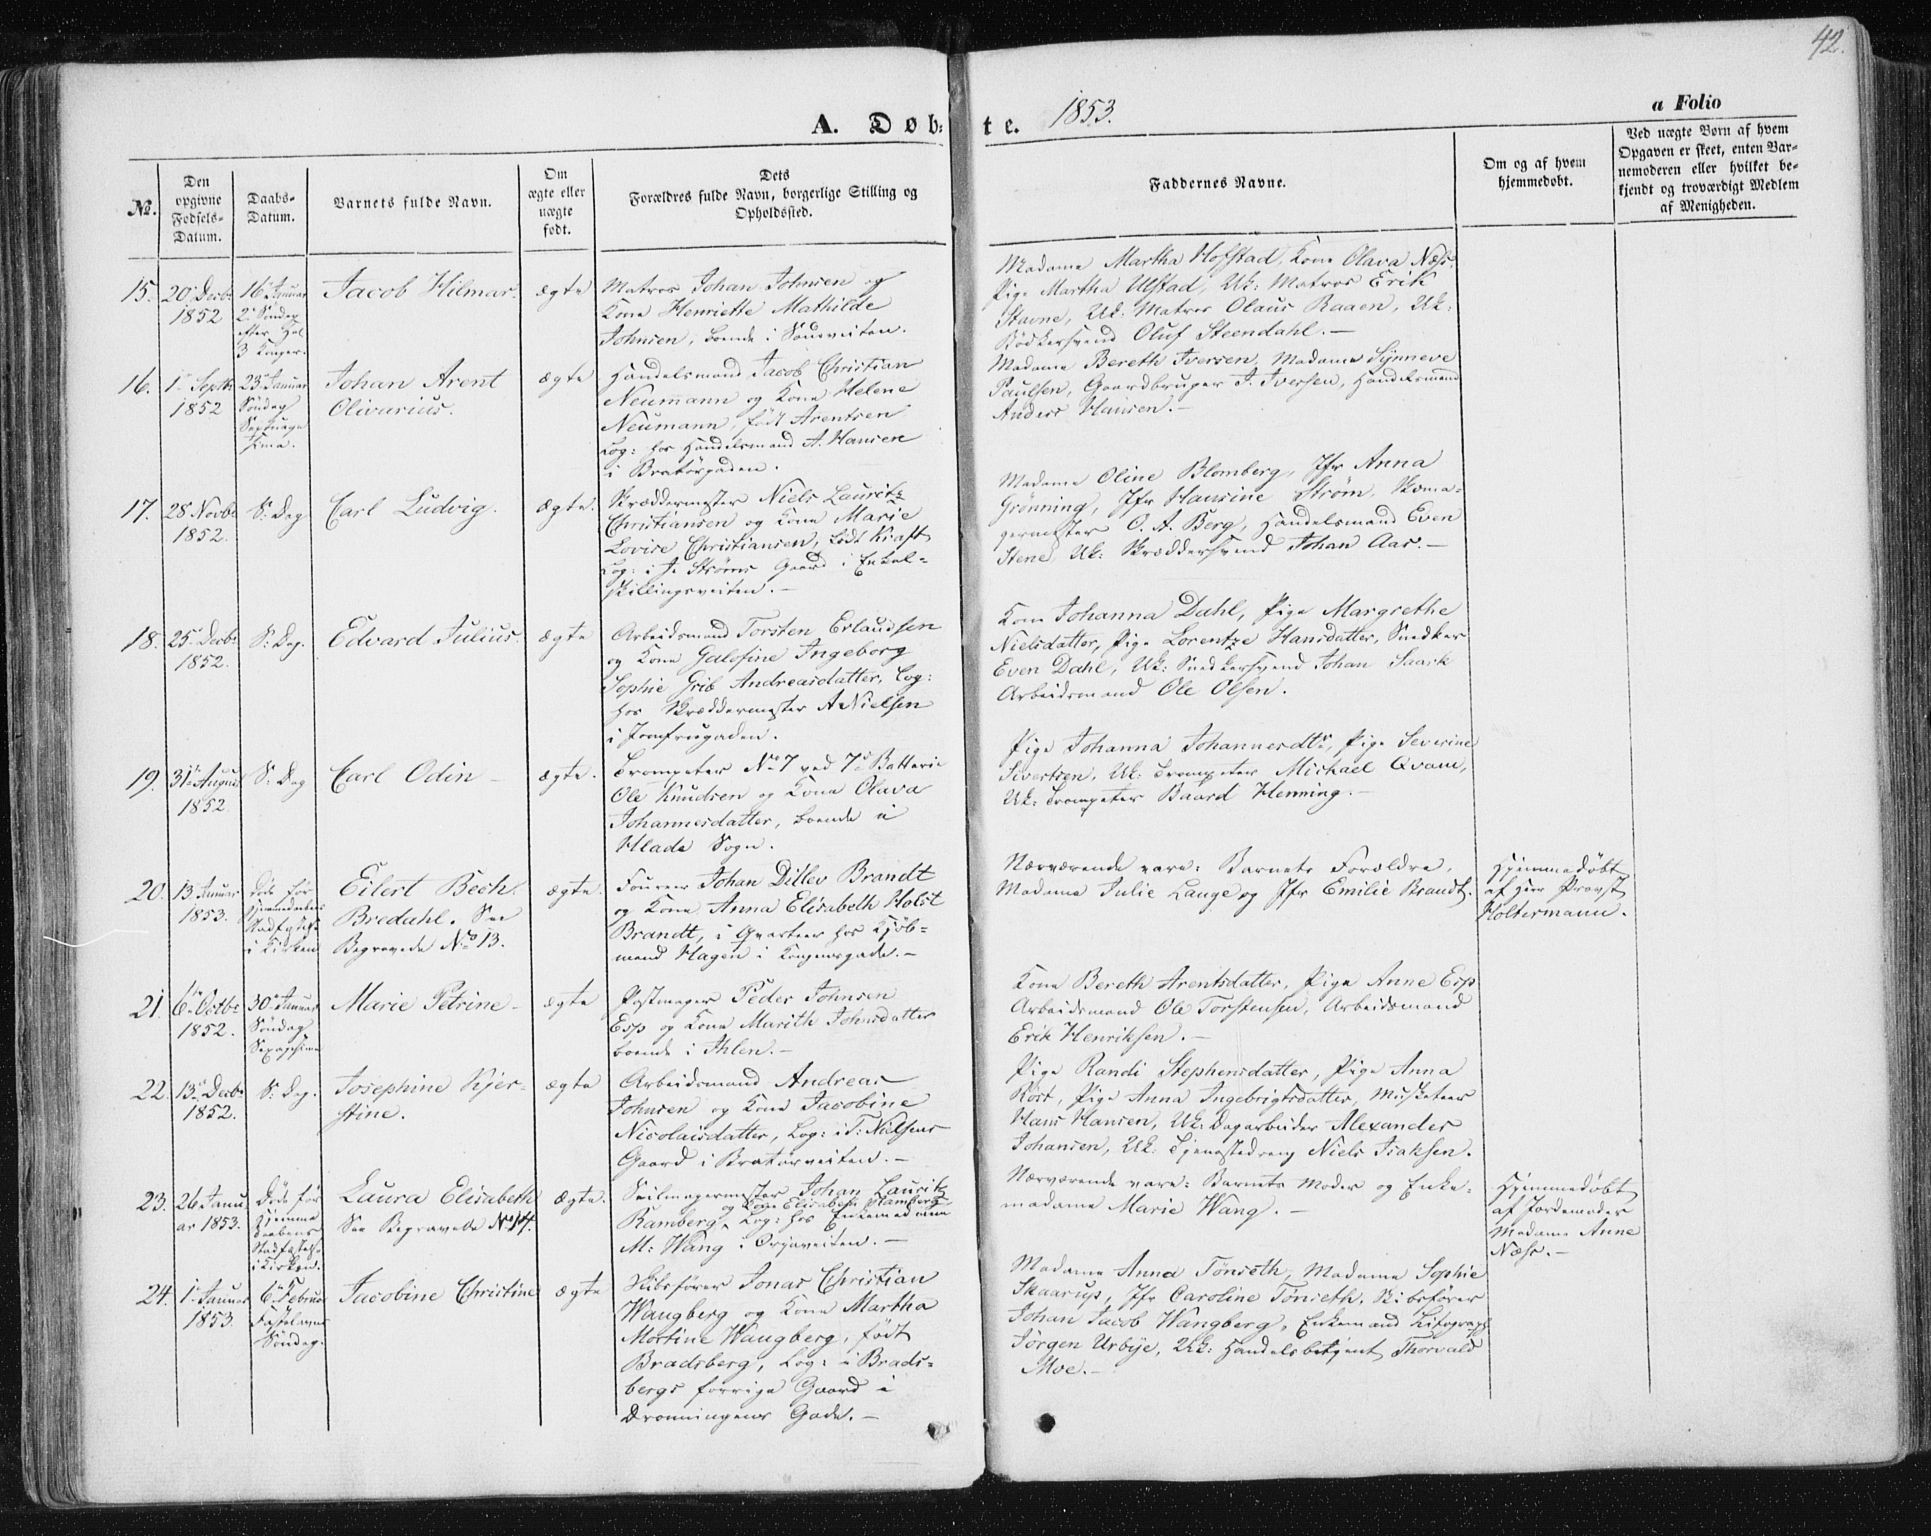 42.
A. Døb:
te. 1853.
a Folio
No.
Den
opgivne
Fødsels-
Datum.
Daabs-
Datum.
Barnets fulde Navn.
Om
ægte eller
uægte
født.
Dets
Forældres fulde Navn, borgerlige Stilling og
Opholdssted.
Faddernes Navne.
Om og af hvem
hjemmedøbt.
Ved uægte Børn af hvem
Opgaven er skeet, enten Bar-
nemoderen eller hvilket be-
kjendt og troværdigt Medlem
af Menigheden.
15.
20 Decbr
1852
16 Januar
2 Søndag
efter Hel
3 Konger.
Jacob Hilmar.
ægte
Matros Johan Johnsen og
Kone Henriette Mathilde
Johnsen, boende i
Madame Martha Hofstad, Kone Olava Næss.
Pige Martha Ulstad, Uk: Matros Erik
Stavne, Uk: Matros Olaus Raaen, Uk:
Bødkersvend Oluf Steendahl.—
16.
1 Septbr
1852
23 Januar
Søndag
Septuage
sima.
Johan Arent
Olivarius.
ægte
Handelsmand Jacob Christian
Neumann og Kone Helene
Neumann, født Arentsen
Log: hos Handelsmand A. Hansen
i Bratørgaden.
Madame Bereth Iversen, Madame Synneve
Paulsen, Gaardbruger J. Iversen, Handelsmand
Anders Hansen.—
17.
28 Novbr
1852.
S: Dag
Carl Ludvig.
ægte.
Skræddermester Niels Lauritz
Christiansen og Kone Marie
Lovise Christiansen, født Kraft
Log: i J. Strøms Gaard i Enkel-
skillingsveiten.—
Madame Oline Blomberg, Jfr Anna
Grønning, Jfr Hansine Strøm, Skoma-
germester O. A. Berg, Handelsmand Even
Stene, Uk: Skræddersvend Johan Aas.—
18.
25 Decbr
1852.
S: Dag.
Edvard Julius.
ægte
Arbeidsmand Torsten Erlandsen
og Kone Galosine Ingeborg
Sophie Grib Andreasdatter, Log:
hos Skræddermester A Nielsen
i Jomfrugaden.
Kone Johanna Dahl, Pige Margrethe
Nielsdatter, Pige Lorentze Hansdatter, Snedker
Even Dahl, Uk: Snedkersvend Johan
Arbeidsmand Ole Olsen.
19.
31 August
1852
S: Dag
Carl Odin —
ægte.
Trompeter No 7 ved 7de Batterie
Ole Knudsen og Kone Olava
Johannesdatter, boende i
Hlade Sogn.
Pige Johanna Johannesdtr, Pige Severine
Sivertsen, Uk: Trompeter Michael Qvam,
Uk: Trompeter Baard Henning.—
20.
13 Januar
1853.
Døde før
Hjemmedaabens
Stadfæstelse
i Kirken
Eilert Bech
Bredahl. See
Begravede No 13.
ægte.
Foureer Johan Ditlev Brandt
og Kone Anna Elisabeth Holst
Brandt, i Qvarteer hos Kjøb-
mand Hagen i Kongensgade.—
Nærværende vare: Barnets Forældre,
Madame Julie Lange og Jfr Emilie Brandt.
Hjemmedøbt
af Herr Provst
Holtermann.
21.
6 Octbr
1852.
30 Januar
Søndag
Sexagesima
Marie Petrine —
ægte
Postmager Peder Johnsen
Esp og Kone Marith Johnsdatter
boende i Ihlen.—
Kone Bereth Arentsdatter, Pige Anne Esp
Arbeidsmand Ole Torstensen, Arbeidsmand
Erik Henriksen.—
22.
13 Decbr
1852.
S: Dag.
Josephine Kjer-
stine.
ægte
Arbeidsmand Andreas
Johnsen og Kone Jacobine
Nicolaisdatter, Log: i T: Nielsens
Gaard i Bratørveiten.—
Pige Randi Stephensdatter, Pige Anna
Røst, Pige Anna Ingebrigtsdatter, Musketeer
Hans Hansen, Uk: Dagarbeider Alexander
Johansen, Uk: Tjenestedreng Niels Isaksen.
23.
26 Janu
ar 1853.
Døde før
Hjemme
daabens
Stadfæstelse
i Kirken.
Laura Elisabeth
See Begravede No 14.
ægte.
Seilmagermester Johan Lauritz
og Kone Elisabeth Ramberg
Ramberg, Log: hos Enkemadame
M: Wang i Ørjaveiten.—
Nærværende vare: Barnets Moder og Enke-
madame Marie Wang.—
Hjemmedøbt
af Jordemoder
Madame Anne
Næss.—
24.
1 Januar
1853.
6 Februar
Fastelavns
Søndag.
Jacobine Christine
ægte
Skibsfører Jonas Christian
Wangberg og Kone Martha
Mortine Wangberg, født
Bradsberg, Log: i Brads-
bergs forrige Gaard i
Dronningens Gade.—
Madame Anna Tønseth, Madame Sophie
Skaarup, Jfr Caroline Tønseth, Skibsfører
Johan Jacob Wangberg, Enkemand Lithograph
Jørgen Urbye, Uk: Handelsbetjent Thorvald
Moe.—